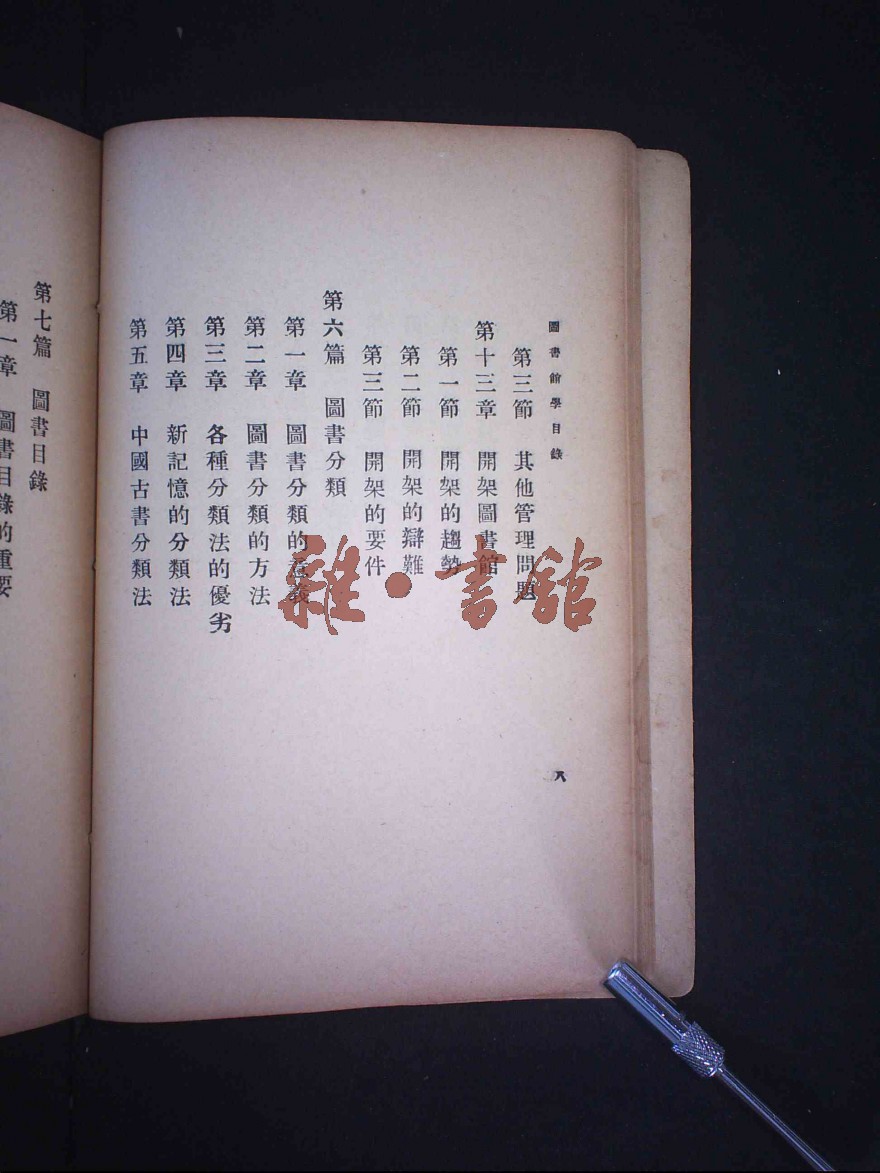 圖書館學目錄
第三節 其他管理問題
第十三章 開架圖書館
第一節 開架的趨勢
第二節 開架的辯難
第三節 開架的要件
第六篇 圖書分類
第一章 圖書分類的意義
第二章 圖書分類的方法
第三章 各種分類法的優劣
第四章 新記憶的分類法
第五章 中國古書分類法
八
第七篇 圖書目錄
第一章 圖書目錄的重要
雜·書館